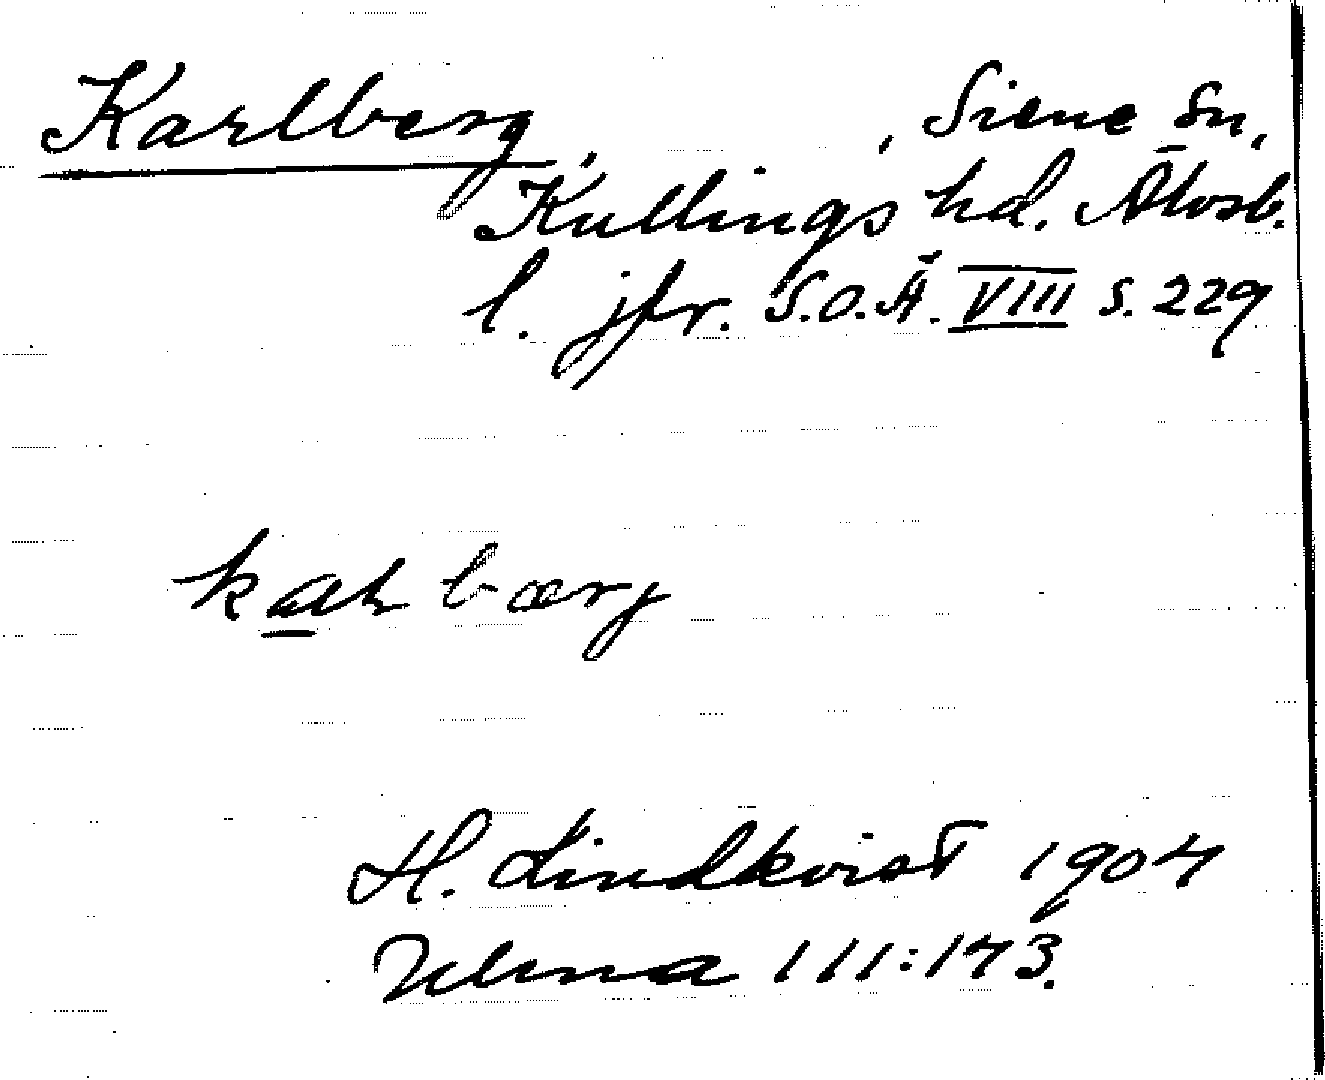 Karlberg, , Siene sn,
Kullings hd. Älvsb.
l. jfr. S.O.Ä. VIII s. 229
bærj
H. Lindkvist 1904
111:143.